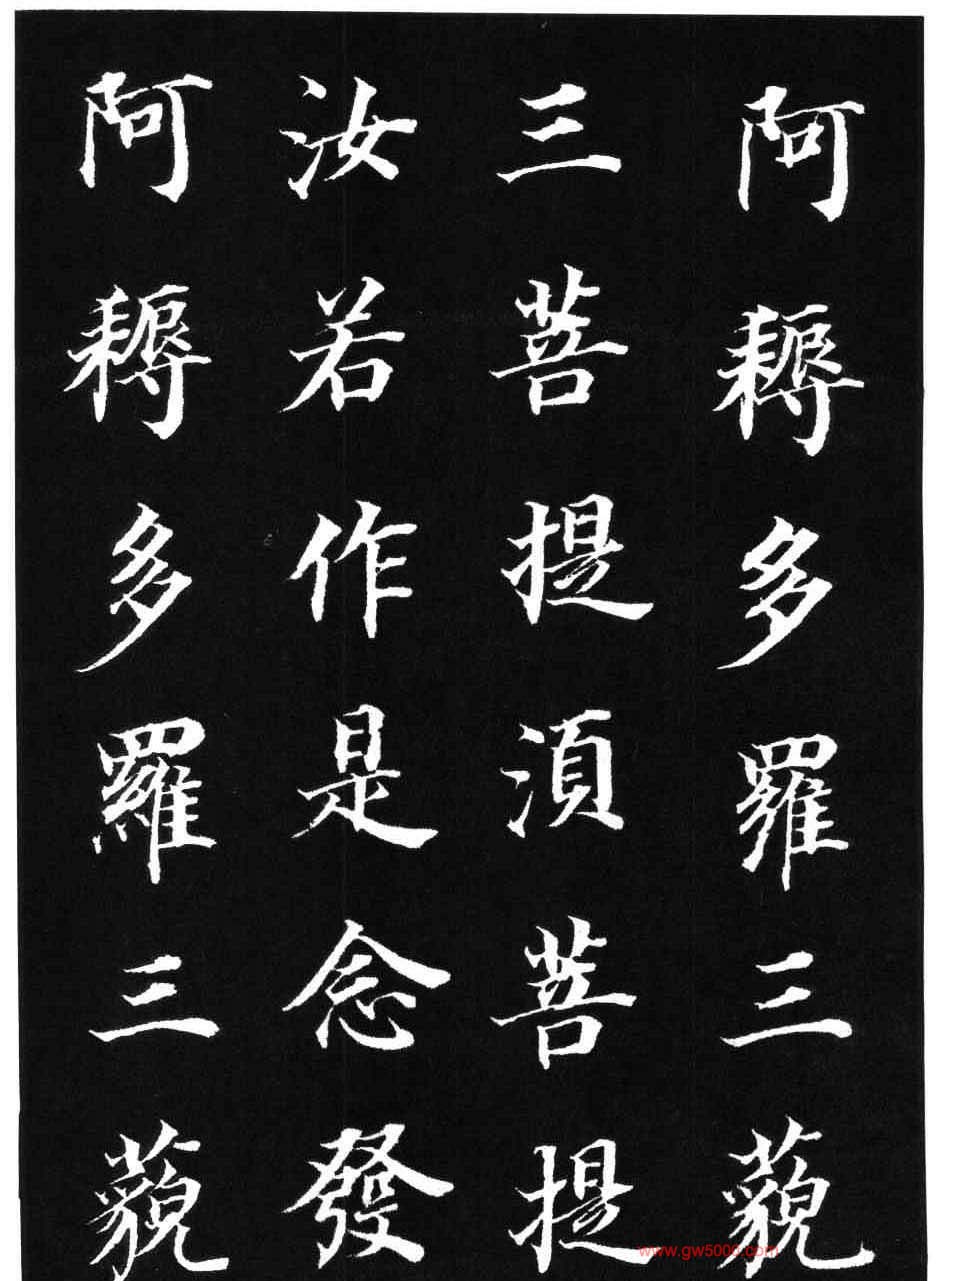 阿耨多羅三藐
三菩提湏菩提
汝若作是念發
阿耨多羅三藐
www.gw5000.com